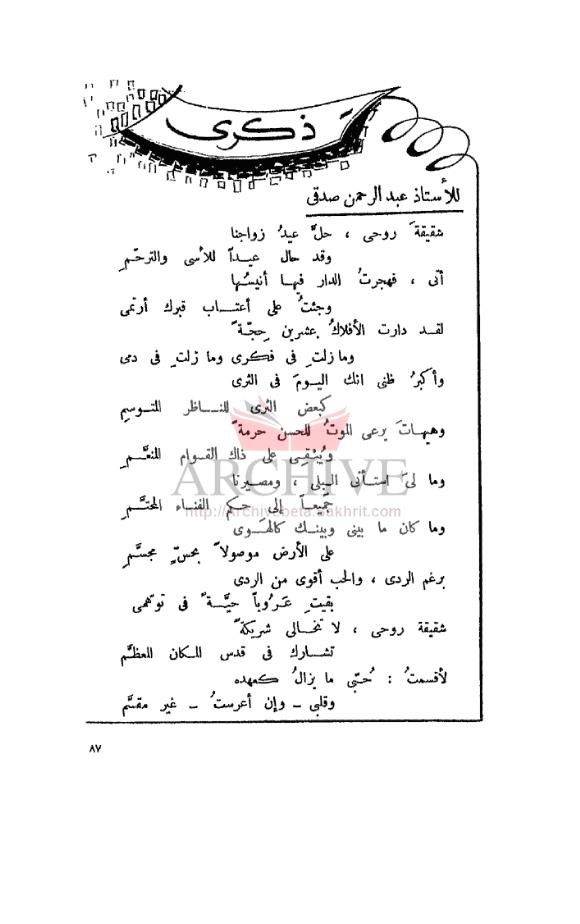 ذكرى
للأستاذ عبد الرحمن صدقى
شقيقةَ روحى ، حلَّ عيدُ زواجنا
وقد حال عيداً للأسى والترحّمِ
أتى ، فهجرتُ الدار فيها أنيسُها
وجئتُ على أعتاب قبرك أرتمى
لقد دارت الأفلاكُ بعشرين حِجّةً
وما زلتِ فى فكرى وما زلتِ فى دمى
وأكبرُ ظنى انك اليومَ فى الثرى
كبعض الثرى للناظر المتوسمِ
وهيهاتَ يرعى الموتُ للحسن حرمةً
ويُبقِى على ذاك القوام المنعَّمِ
وما لىَ استأنى البِلى ، ومصيرنا
جميعاً إلى حكم الفناء المحتَّمِ
وما كان ما بينى وبينك كالهَوى
على الأرض موصولاً بحسٍّ مجسَّمِ
برغم الردى ، والحب أقوى من الردى
بقيتِ عَرُوباً حيَّةً فى توهمى
شقيقة روحى ، لا تخالى شريكةً
تشارك فى قدس المكان المعظَّم
لأقسمتُ : حُبّى ما يزالُ كعهده
وقلبى – وإن أعرستُ – غير مقسَّم
ARCHIVE
http://Archivebeta.Sakhrit.com
٨٧